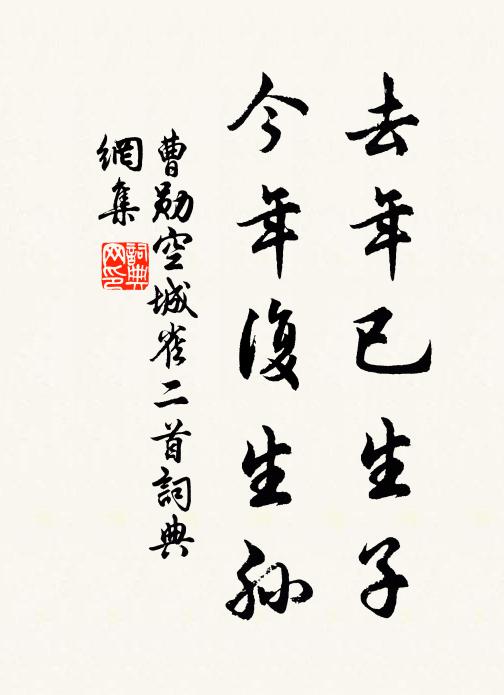 去年已生子
今年復生孙
曹勛空城雀二首詞典
網集
詞典
网印